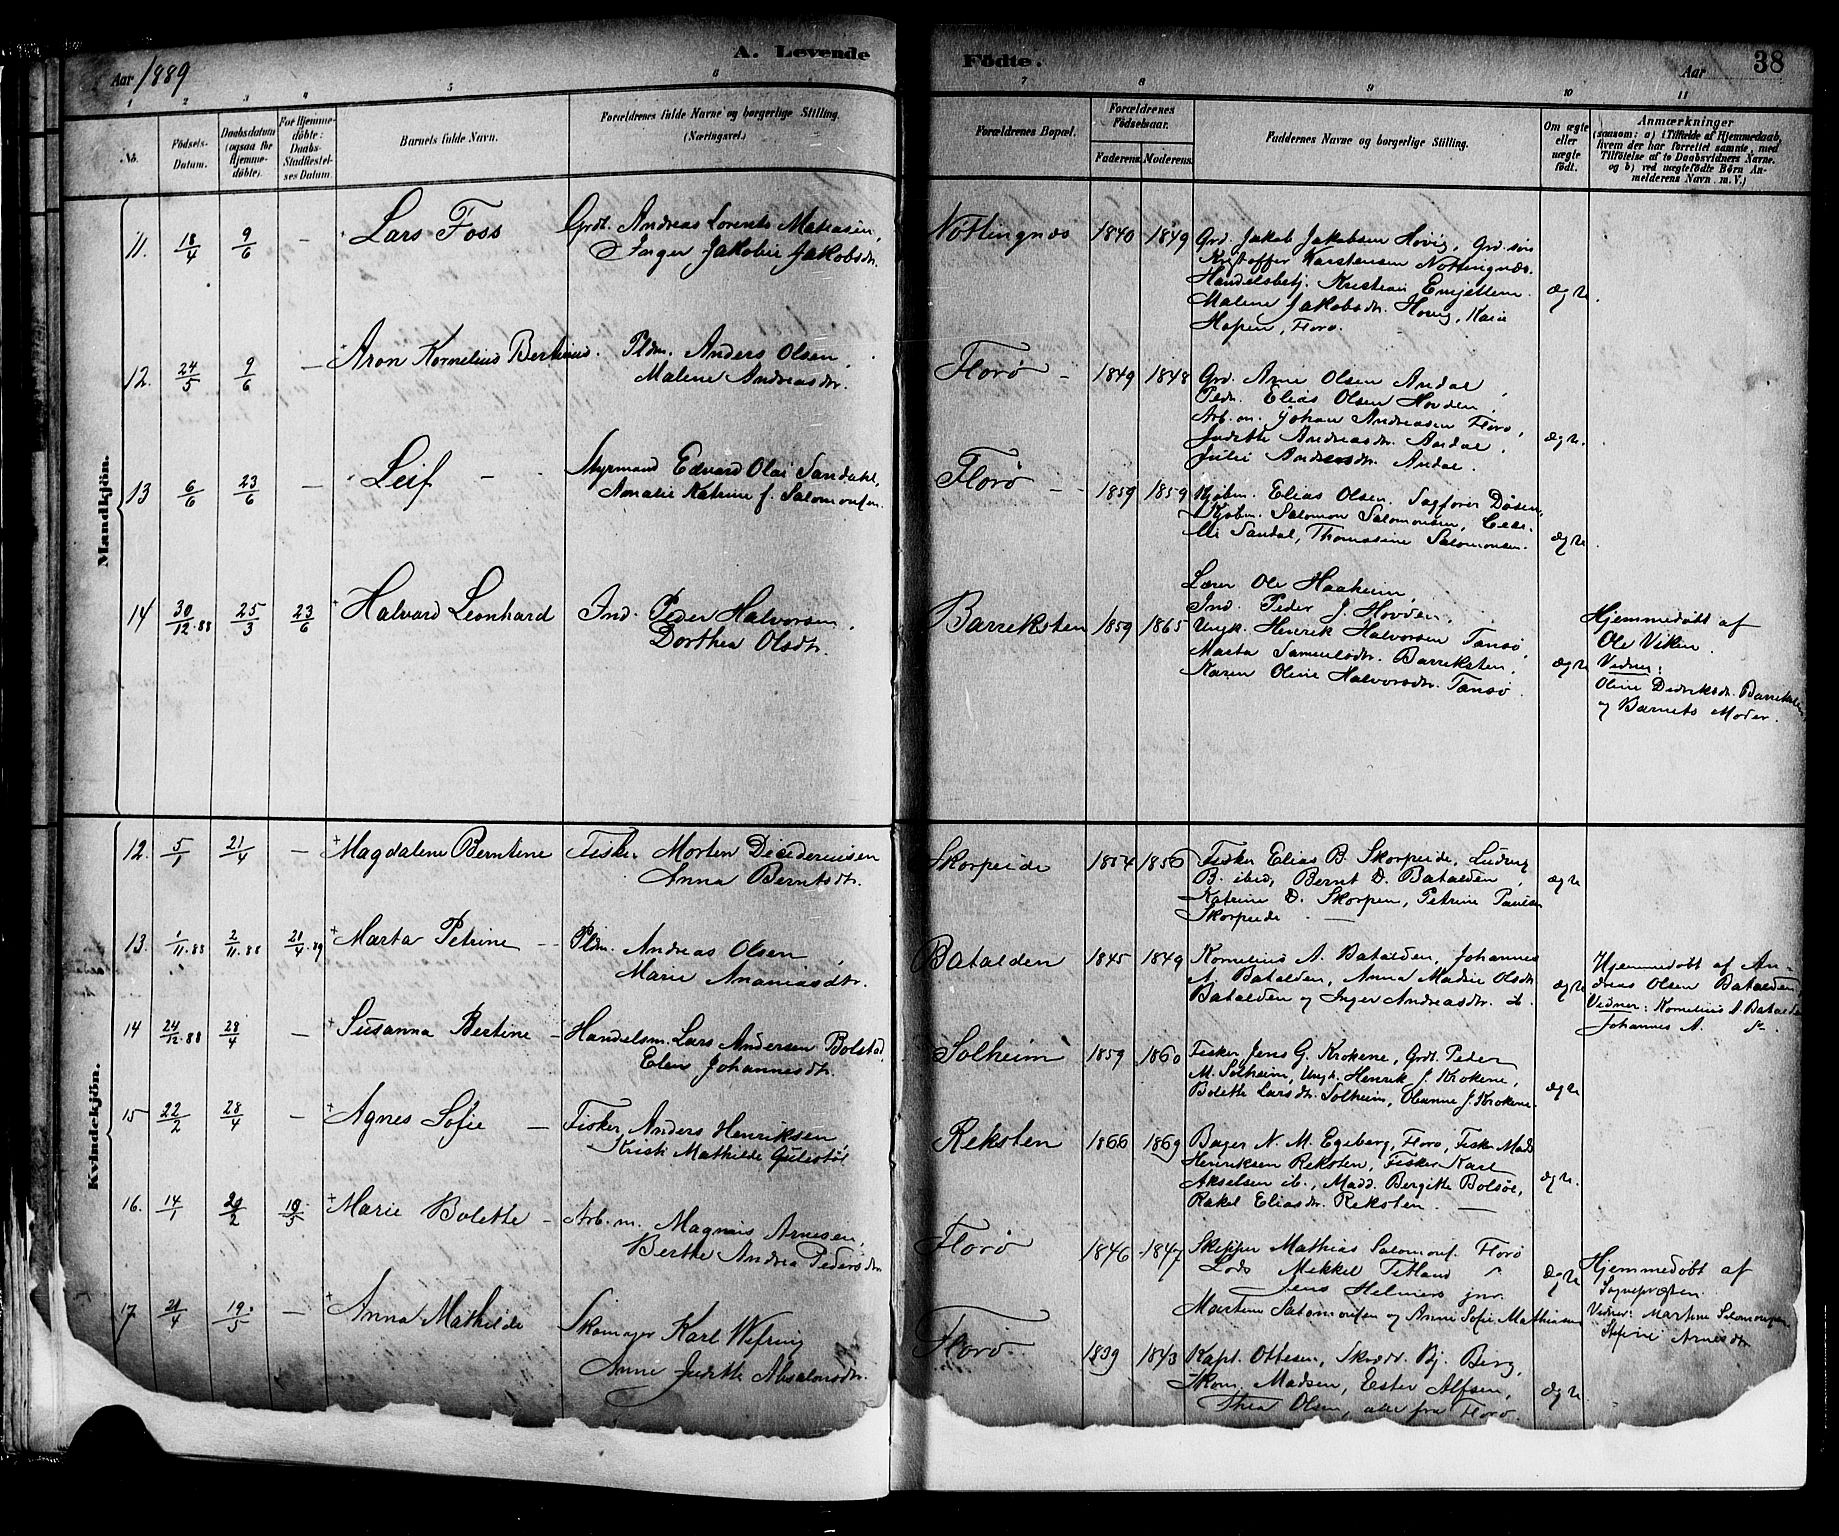 Aar 1889
A. Levende
Födte.
Aar
38
1 2 3 4 5 6
7 8 9 10 11
No.
Födsels-
Datum.
Daabsdatum
(ogsaa for
Hjemme-
döbte).
For Hjemme-
döbte:
Daabs-
Stadfæstel-
ses Datum.
Barnets fulde Navn.
Forældrenes fulde Navne og borgerlige Stilling.
(Næringsvei.)
Forældrenes Bopæl.
Forældrenes
Födselsaar.
Faderens. Moderens.
Faddernes Navne og borgerlige Stilling.
Om ægte
eller
uægte
födt.
Anmærkninger
(saasom: a) i Tilfælde af Hjemmedaab,
hvem der har forrettet samme, med
Tilföielse af to Daabsvidners Navne.
og b) ved uægtefödte Börn An-
melderens Navn m. V.)
Mandkjön.
11. 18/4 9/6 — Lars Foss
Grdt. Andreas Lorents Matiasen,
Inger Jakobie Jakobsdtr.
Nöttingnæs 1840 1849
Grd. Jakob Jakobsen Hovig, Grd. sön
Kristoffer Karstensen Nöttingnæs.
Handelsbetj. Kristian
Malene Jakobsdtr. Hovig, Karie
Hopen, Florö.
ægte.
12. 24/5 9/6 — Aron Kornelius Bertinus.
Pldm. Anders Olsen
Malene Andreasdtr.
Florö — 1849 1848
Grd. Arne Olsen Andal
Pldm. Elias Olsen Hovden,
Arb. m. Johan Andreasen Florö,
Judithe Andreasdtr. Andal,
Julie Andersdtr. Andal.
ægte.
13 6/6 23/6 — Leif —
Styrmand Edvard Olai Sandahl,
Amalie Katrine f. Salomonsen.
Florö — 1859 1859
Kjöbm. Elias Olsen. Sagförer Dösen,
Kjöbm. Salomon Salomonsen, Ceci-
lie Sandal, Thomasine Salomonsen.
ægte.
14 30/12.88 25/3 23/6 Halvard Leonhard
Ind. Peder Halvorsen,
Dorthea Olsdtr.
Barreksten 1859 1865
Lærer Ole Haaheim,
Ind. Peder J. Hovden,
Ungk. Henrik Halvorsen Tansö,
Marta Samuelsdtr. Barreksten,
Karen Oline Halvorsdtr. Tansö.
ægte
Hjemmedöbt af
Ole Viken.
Vidner:
Oline Didriksdtr. Barreksten
og Barnets Moder.
Kvindekjön.
12. 5/1 21/4 — Magdalene Berntine
Fisker Morten Desideriusen
Anna Berntsdtr.
Skorpeide 1854 1856
Fisker Elias B. Skorpeide, Ludvig
B. ibid, Bernt D. Batalden,
Katrine D. Skorpen, Petrine
Skorpeide —
ægte
13. 1/11.88 2/11.88 21/4.89 Marta Petrine —
Pldm. Andreas Olsen
Marie Ananiasdtr.
Batalden 1845 1849
Kornelius A. Batalden, Johannes
A. Batalden, Anna Madie Olsdtr.
Batalden og Inger Andreasdtr. ib.
ægte
Hjemmedöbt af An-
dreas Olsen Batalden
Vidner: Kornelius A. Batalden
Johannes A. do.
14 24/12.88 28/4 — Susanna Bertine —
Handelsm. Lars Andersen Bolstad,
Elen Johannesdtr.
Solheim 1859 1860
Fisker Jens G. Krokene, Grdt. Peder
M. Solheim, Ungk. Henrik J. Krokene,
Bolette Larsdtr. Solheim, Oleanne J. Krokene.
ægte
15 22/2 28/4 — Agnes Sofie —
Fisker Anders Henriksen
Krist. Mathilde Gulestöl
Reksten 1866 1869
Bager N. M. Egeberg, Florö, Fisker Mads
Henriksen Reksten, Fisker Karl
Akselsen ib., Madd. Bergitte Bolsöe,
Rakel Eliasdtr. Reksten. —
ægte.
16. 14/1 /2 19/5 Marie Bolette —
Arb. m. Magnus Arnesen,
Berthe Andrea Pedersdtr.
Florö 1846 1847
Skipper Mathias Salomons. Florö
Lods Mikkel Tetland "
Jens Helmers jnr.
Martine Salomonsen og Anne Sofie Mathiasen
ægte
Hjemmedöbt af
Sognepræsten.
Vidner: Martine Salomonsen
Arnesdtr.
17. 21/4 19/5 — Anna Mathilde
Skomager Karl Wefring
Anne Judithe Absalonsdtr.
Florö. 1839 1843
Kapt. Ottesen, Skrædd. Bj. Berg,
Skom. Madsen, Ester Alfsen,
Thea Olsen, alle fra Florö.
ægte